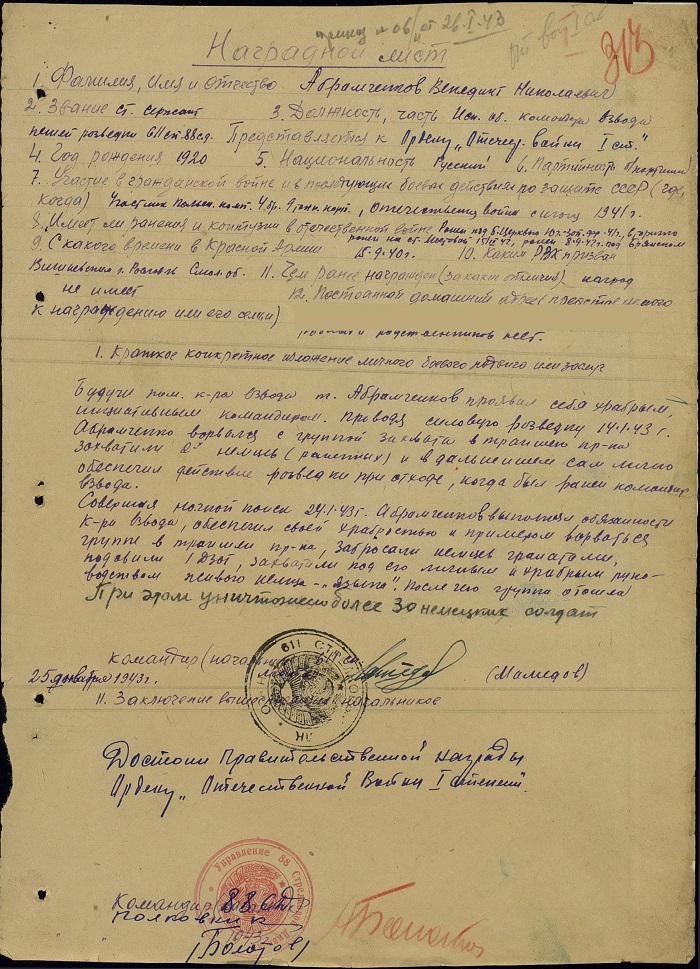 приказ № 06/н от 26.I.43
313
Наградной лист
1. Фамилия, Имя и отчество Абрамченков Венедикт Николаевич
2. Звание ст. сержант 3. Должность, часть пом. ком-ра взвода
пешей разведки 611 сп 88 сд. Представляется к Ордену „Отечеств. войны I ст."
4. Год рождения 1920 5. Национальность Русский 6. Партийность б/партийный
7. Участие в гражданской войне и в последующих боевых действиях по защите СССР (где,
когда) Отечественной войны с 1941 г.
8. Имеет ли ранения и контузии в отечественной войне Ранен под
9. С какого времени в Красной Армии 15.9.40г. 10. Каким РВК призван
Смол. об. 11. Чем ранее награжден (за какие отличия) наград
не имеет 12. Постоянный домашний адрес представляемого
к награждению или его семьи)
родственников нет.
I. Краткое конкретное изложение личного боевого подвига или заслуг
Будучи пом. к-ра взвода т. Абрамченков проявил себя храбрым,
инициативным командиром. Проводя силовую разведку 14.1.43 г.
Абрамченко ворвался с группой захвата в траншею пр-ка
захватили 2х немцев (раненых) и в дальнейшем сам лично
обеспечил действие разведки при отходе, когда был ранен командир
взвода.
Совершая ночной поиск 24.1.43г. Абрамченков выполнял обязанности
к-ра взвода, обеспечил своей храбростью и примером ворваться
группе в траншеи пр-ка, забросали немцев гранатами,
подавили 1 ДЗОТ, захватили под его личным и храбрым руко-
водством немца - „языка". После чего группа отошла
При этом уничтожено более 30 немецких солдат
Командир (Мамедов)
25 1943г.
II. Заключение начальников
Достоин Правительственной награды
Ордену „Отечественной Войны I степени".
Управление 88 Стрелковой
Командир 88 СД
полковник
(Болотов)